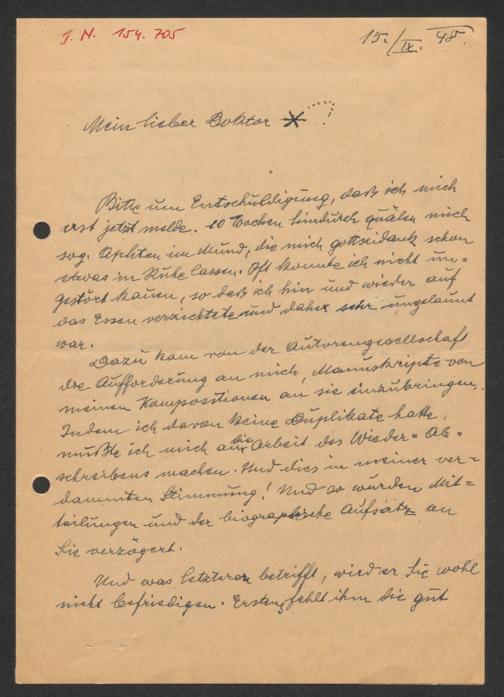 J. N. 154.705
15./IX. 48.
Mein lieber Doktor * ?
Bitte um Entschuldigung, daß ich mich
erst jetzt melde. 10 Wochen hindurch quälen mich
sog. Aphten im Mund, die mich gottseidank schon
etwas in Ruhe lassen. Oft konnte ich nicht un=
gestört kauen, so daß ich hin und wieder auf
das Essen verzichtete und daher sehr ungelaunt
war.
Dazu kam von der Autorengesellschaft
die Aufforderung an mich, Manuskripte von
meinen Kompositionen an sie einzubringen.
Indem ich davon keine Duplikate hatte,
mußte ich mich an die Arbeit des Wieder=Ab=
schreibens machen. Und dies in meiner ver=
dammten Stimmung! Und so wurden Mit=
teilungen und der biographische Aufsatz an
Sie verzögert.
Und was letzteren betrifft, wird er Sie wohl
nicht befriedigen. Erstens fehlt ihm die gut